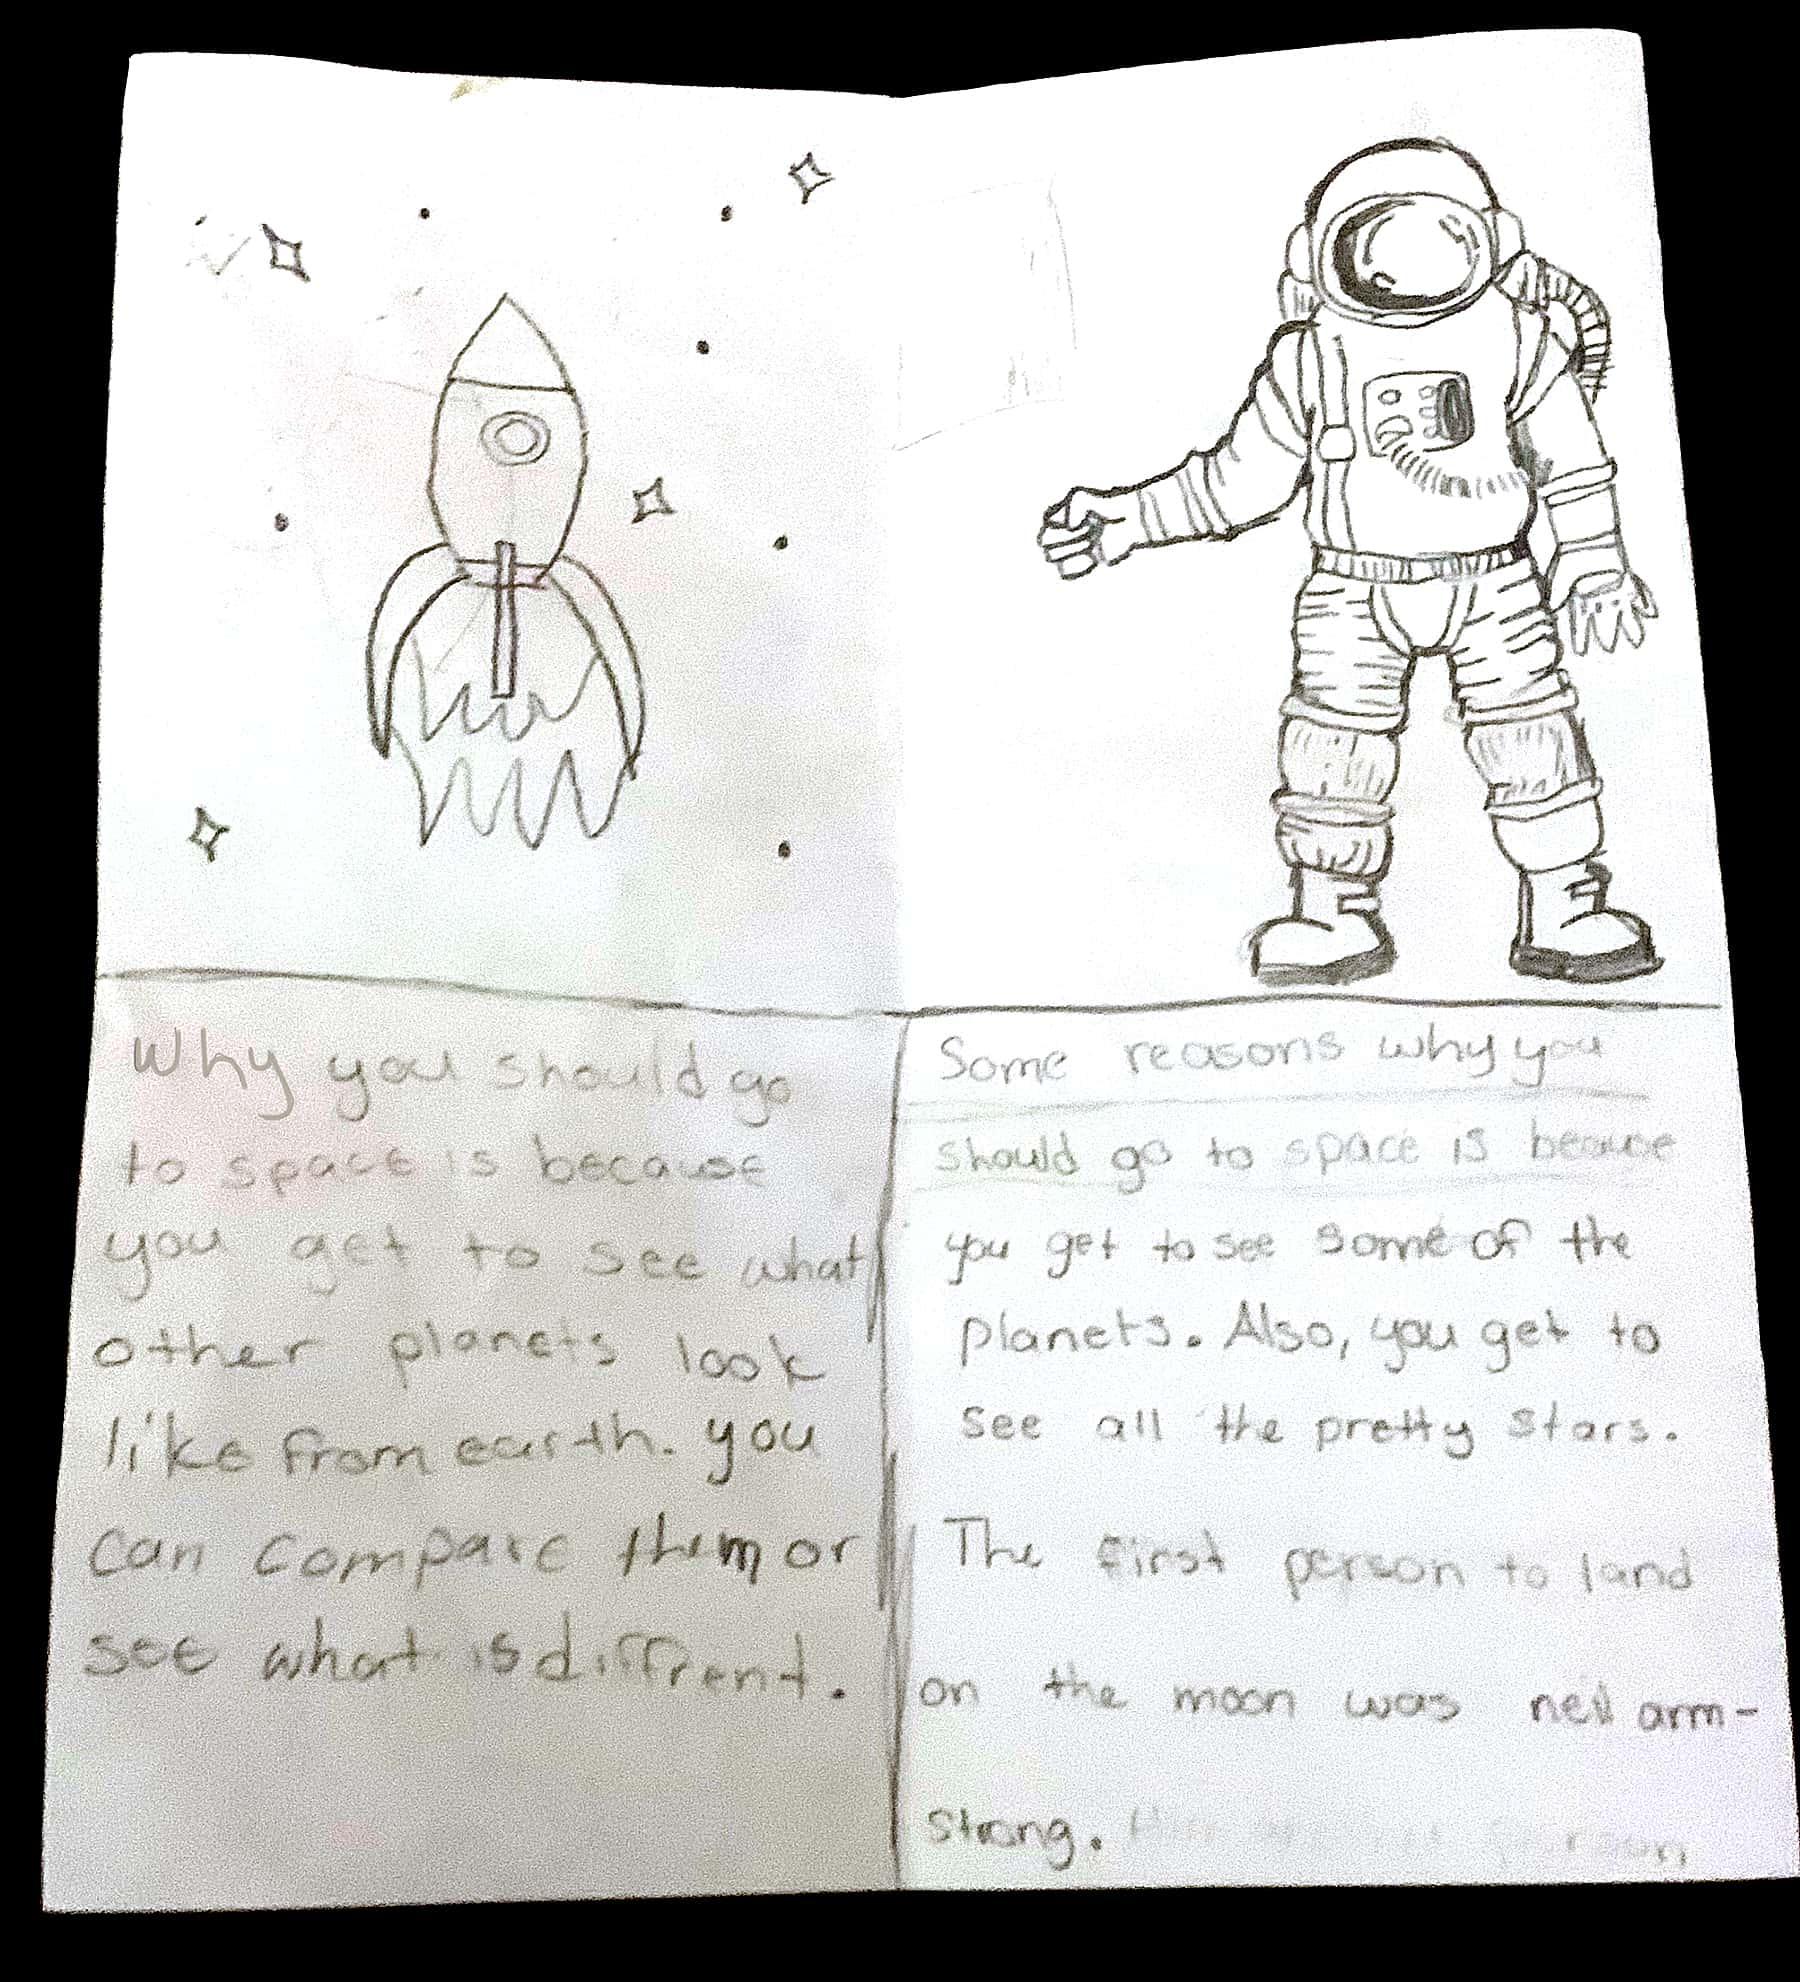 Why you should go
to space is because
you get to see what
other planets look
like from earth. you
can compare them or
see what is diffrent.
Some reasons why you
should go to space is because
you get to see some of the
planets. Also, you get to
see all the pretty stars.
The first person to land
on the moon was neil arm-
strong.